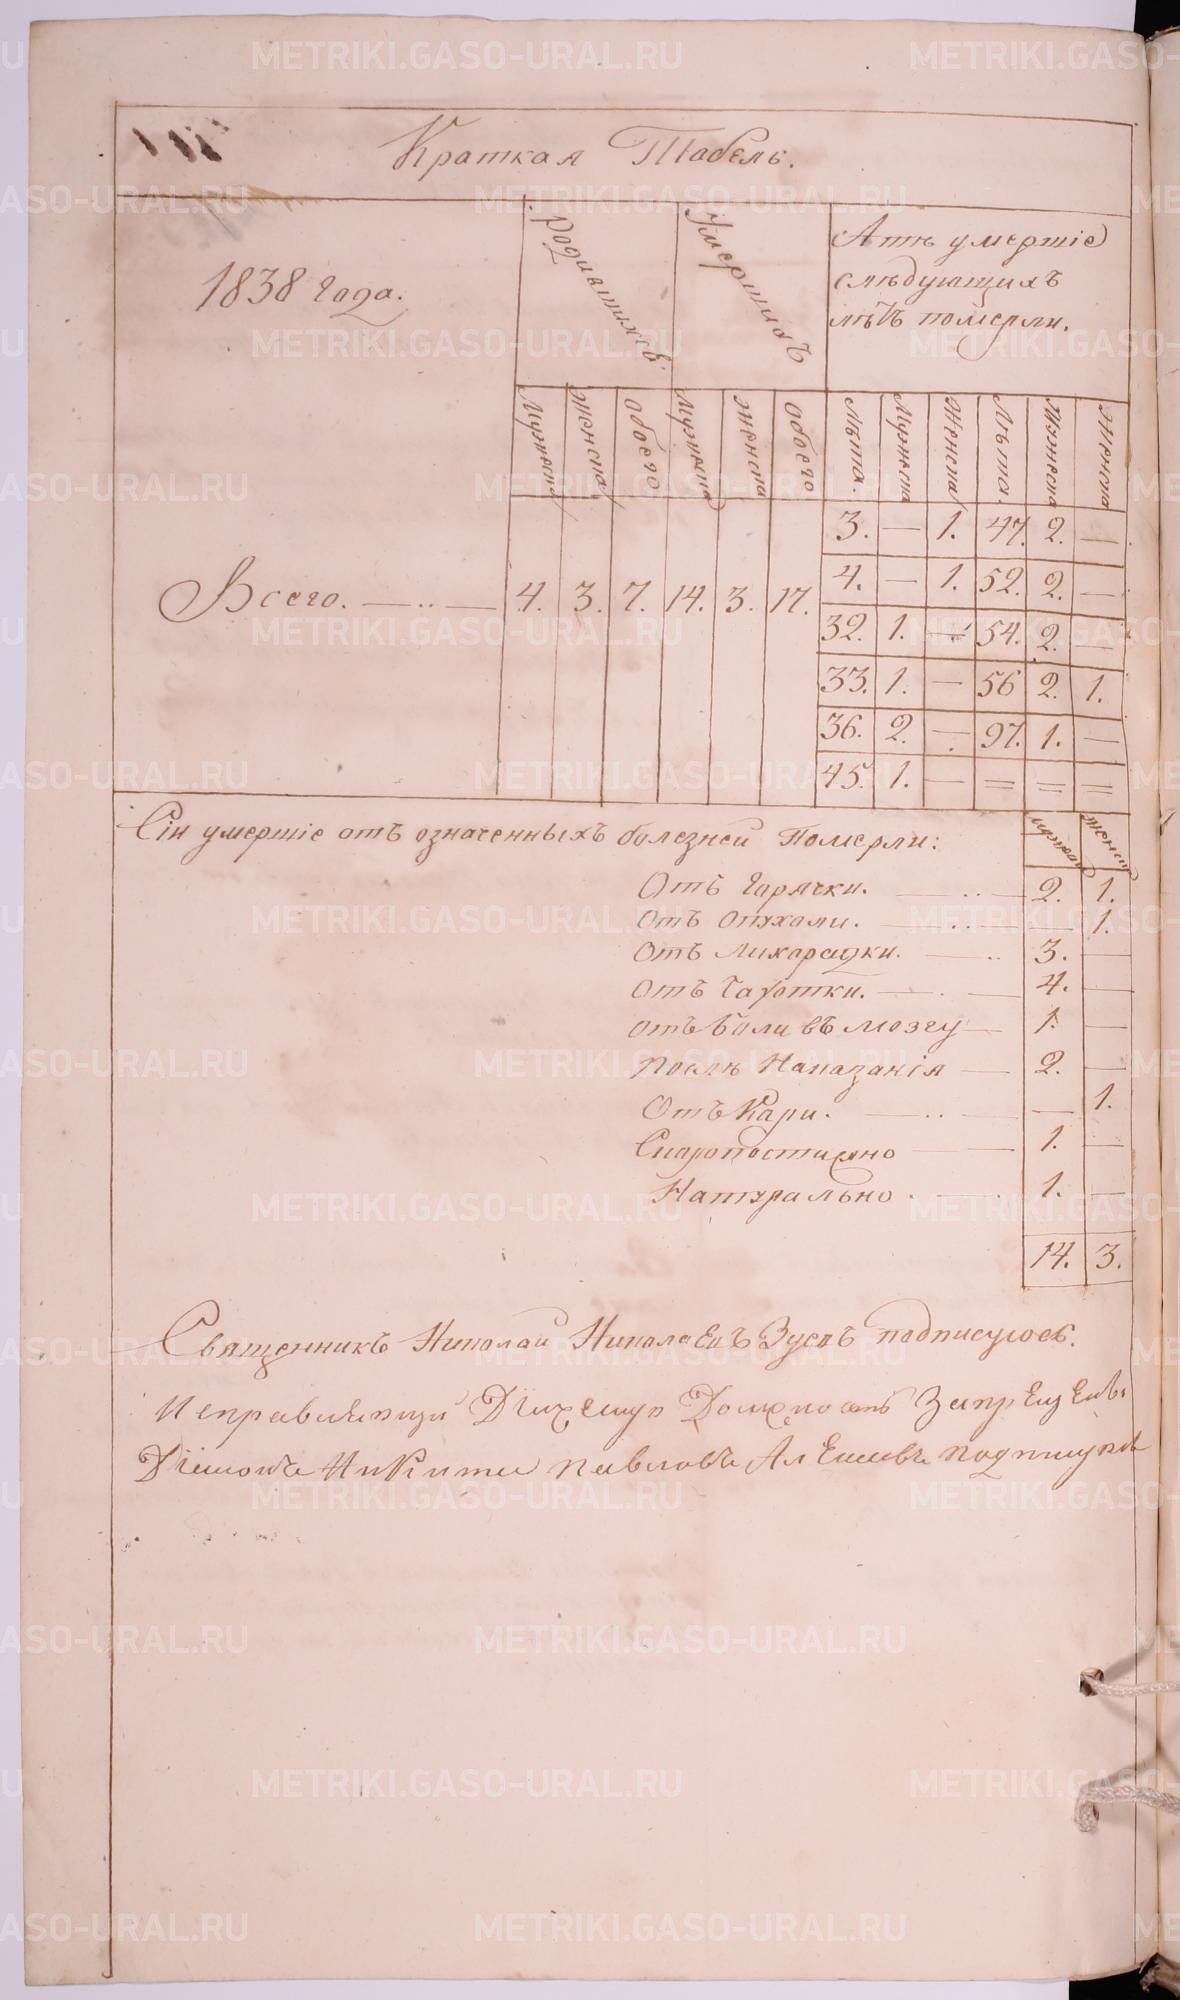 Краткая Табель.
1838 года.
родившихся.
Умершихъ
Аттъ умершіе
слѣдующихъ
лѣтъ померли.
Мужеска Женска обоего Мужеска Женска обоего Лѣта. Мужеска Женска Лѣта. Мужеска Женска
3. — 1. 47. 2. —
4. — 1. 52. 2. —
Всего. — ·· — 4. 3. 7. 14. 3. 17.
32. 1. — 54. 2. —
33. 1. — 56 2. 1.
36. 2. — 97. 1. —
45. 1. — = = =
Сіи умершіе отъ означенныхъ болезней Померли:
Мужеска Женска
Отъ Горячки. — ·· — 2. 1.
отъ опухоли. — ·· — — 1.
отъ Лихорадки. — ·· 3. —
отъ Чахотки. — · — 4. —
отъ боли въ мозгу — 1. —
послѣ Наказанія — 2. —
Отъ Кори. — ·· — — 1.
Скоропостижно — 1. —
Натурально. — · 1. —
14. 3.
Священникъ Николай Николаевъ Зусевъ подписуюсь.
Исправляющій Дьяческую Должность Запрещенъ
Діаконъ Никита Павловъ подпи